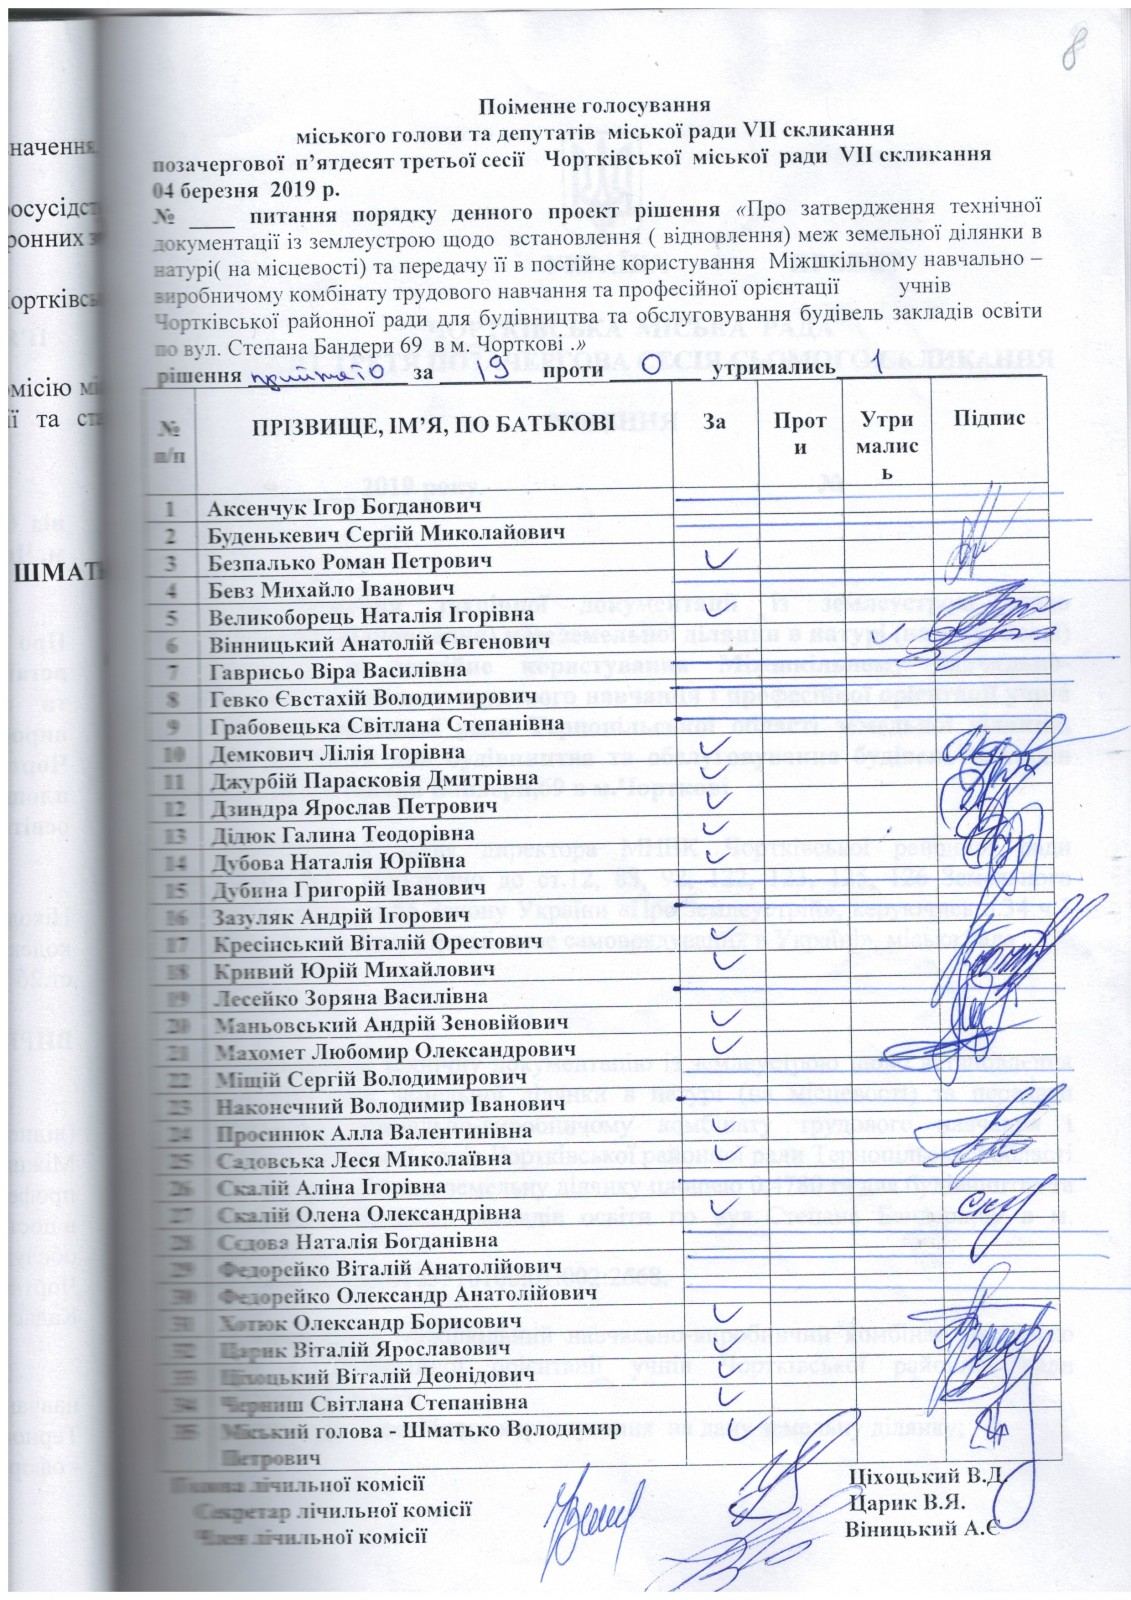 8
Поіменне голосування
міського голови та депутатів міської ради VII скликання
позачергової п’ятдесят третьої сесії Чортківської міської ради VII скликання
04 березня 2019 р.
№ ____ питання порядку денного проект рішення «Про затвердження технічної
документації із землеустрою щодо встановлення ( відновлення) меж земельної ділянки в
натурі( на місцевості) та передачу її в постійне користування Міжшкільному навчально –
виробничому комбінату трудового навчання та професійної орієнтації учнів
Чортківської районної ради для будівництва та обслуговування будівель закладів освіти
по вул. Степана Бандери 69 в м. Чорткові .»
рішення прийнято за 19 проти 0 утримались 1
№ п/п ПРІЗВИЩЕ, ІМ’Я, ПО БАТЬКОВІ За Прот и Утри малис ь Підпис
1 Аксенчук Ігор Богданович
2 Буденькевич Сергій Миколайович
3 Безпалько Роман Петрович
4 Бевз Михайло Іванович
5 Великоборець Наталія Ігорівна
6 Вінницький Анатолій Євгенович
7 Гаврисьо Віра Василівна
8 Гевко Євстахій Володимирович
9 Грабовецька Світлана Степанівна
10 Демкович Лілія Ігорівна
11 Джурбій Парасковія Дмитрівна
12 Дзиндра Ярослав Петрович
13 Дідюк Галина Теодорівна
14 Дубова Наталія Юріївна
15 Дубина Григорій Іванович
16 Зазуляк Андрій Ігорович
17 Кресінський Віталій Орестович
18 Кривий Юрій Михайлович
19 Лесейко Зоряна Василівна
20 Маньовський Андрій Зеновійович
21 Махомет Любомир Олександрович
22 Міщій Сергій Володимирович
23 Наконечний Володимир Іванович
24 Просинюк Алла Валентинівна
25 Садовська Леся Миколаївна
26 Скалій Аліна Ігорівна
27 Скалій Олена Олександрівна
28 Сєдова Наталія Богданівна
29 Федорейко Віталій Анатолійович
30 Федорейко Олександр Анатолійович
31 Хотюк Олександр Борисович
32 Царик Віталій Ярославович
33 Ціхоцький Віталій Деонідович
34 Черниш Світлана Степанівна
35 Міський голова - Шматько Володимир
Петрович
Голова лічильної комісії Ціхоцький В.Д.
Секретар лічильної комісії Царик В.Я.
Член лічильної комісії Віницький А.Є